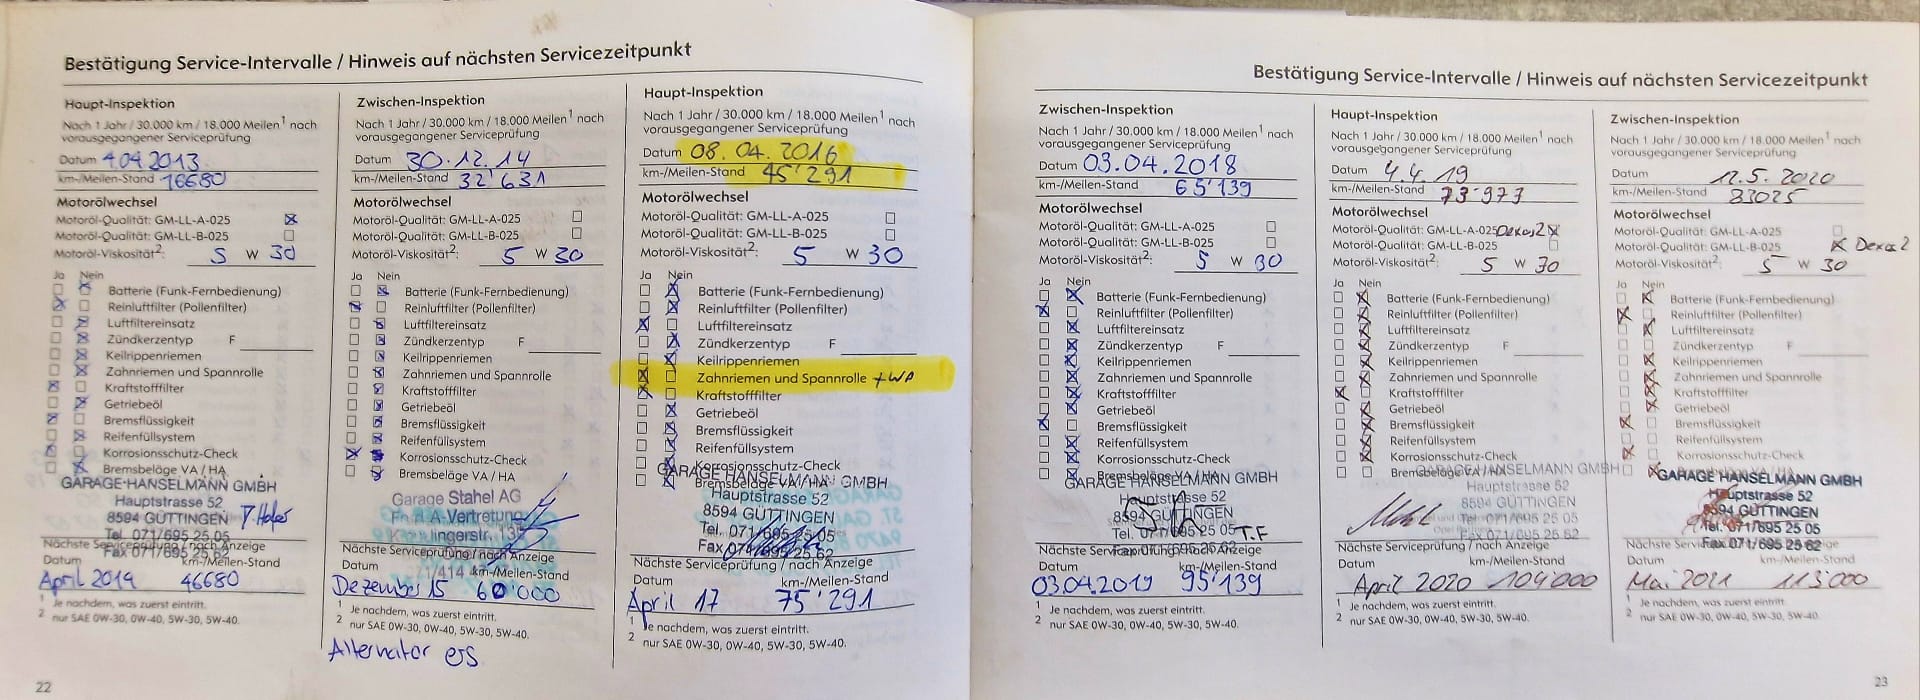 Bestätigung Service-Intervalle / Hinweis auf nächsten Servicezeitpunkt
Haupt-Inspektion
Nach 1 Jahr / 30.000 km / 18.000 Meilen¹ nach
vorausgegangener Serviceprüfung
Datum 4.04.2013
km-/Meilen-Stand 16680
Motorölwechsel
Motoröl-Qualität: GM-LL-A-025
Motoröl-Qualität: GM-LL-B-025
Motoröl-Viskosität²: 5 W 30
Ja Nein
Batterie (Funk-Fernbedienung)
Reinluftfilter (Pollenfilter)
Luftfiltereinsatz
Zündkerzentyp F
Keilrippenriemen
Zahnriemen und Spannrolle
Kraftstofffilter
Getriebeöl
Bremsflüssigkeit
Reifenfüllsystem
Korrosionsschutz-Check
Bremsbeläge VA / HA
GARAGE HANSELMANN GMBH
Hauptstrasse 52
8594 GÜTTINGEN
Tel. 071/695 25 05
Nächste Serviceprüfung / nach Anzeige
Fax 071/695 25 62
Datum km-/Meilen-Stand
April 2014 46680
¹ Je nachdem, was zuerst eintritt.
² nur SAE 0W-30, 0W-40, 5W-30, 5W-40.
22
Zwischen-Inspektion
Nach 1 Jahr / 30.000 km / 18.000 Meilen¹ nach
vorausgegangener Serviceprüfung
Datum 30.12.14
km-/Meilen-Stand 32'631
Motorölwechsel
Motoröl-Qualität: GM-LL-A-025
Motoröl-Qualität: GM-LL-B-025
Motoröl-Viskosität²: 5 W 30
Ja Nein
Batterie (Funk-Fernbedienung)
Reinluftfilter (Pollenfilter)
Luftfiltereinsatz
Zündkerzentyp F
Keilrippenriemen
Zahnriemen und Spannrolle
Kraftstofffilter
Getriebeöl
Bremsflüssigkeit
Reifenfüllsystem
Korrosionsschutz-Check
Bremsbeläge VA / HA
Garage Stahel AG
A-Vertretung
Nächste Serviceprüfung / nach Anzeige
Datum km-/Meilen-Stand
Dezember 15 60'000
¹ Je nachdem, was zuerst eintritt.
² nur SAE 0W-30, 0W-40, 5W-30, 5W-40.
Alternator ers
Haupt-Inspektion
Nach 1 Jahr / 30.000 km / 18.000 Meilen¹ nach
vorausgegangener Serviceprüfung
Datum 08.04.2016
km-/Meilen-Stand 45'291
Motorölwechsel
Motoröl-Qualität: GM-LL-A-025
Motoröl-Qualität: GM-LL-B-025
Motoröl-Viskosität²: 5 W 30
Ja Nein
Batterie (Funk-Fernbedienung)
Reinluftfilter (Pollenfilter)
Luftfiltereinsatz
Zündkerzentyp F
Keilrippenriemen
Zahnriemen und Spannrolle + WP
Kraftstofffilter
Getriebeöl
Bremsflüssigkeit
Reifenfüllsystem
Korrosionsschutz-Check
GARAGE HANSELMANN GMBH
Bremsbeläge VA / HA
Hauptstrasse 52
8594 GÜTTINGEN
Tel. 071/695 25 05
Fax 071/695 25 62
Nächste Serviceprüfung / nach Anzeige
Datum km-/Meilen-Stand
April 17 75'291
¹ Je nachdem, was zuerst eintritt.
² nur SAE 0W-30, 0W-40, 5W-30, 5W-40.
Bestätigung Service-Intervalle / Hinweis auf nächsten Servicezeitpunkt
Zwischen-Inspektion
Nach 1 Jahr / 30.000 km / 18.000 Meilen¹ nach
vorausgegangener Serviceprüfung
Datum 03.04.2018
km-/Meilen-Stand 65'139
Motorölwechsel
Motoröl-Qualität: GM-LL-A-025
Motoröl-Qualität: GM-LL-B-025
Motoröl-Viskosität²: 5 W 30
Ja Nein
Batterie (Funk-Fernbedienung)
Reinluftfilter (Pollenfilter)
Luftfiltereinsatz
Zündkerzentyp F
Keilrippenriemen
Zahnriemen und Spannrolle
Kraftstofffilter
Getriebeöl
Bremsflüssigkeit
Reifenfüllsystem
Korrosionsschutz-Check
Bremsbeläge VA / HA
GARAGE HANSELMANN GMBH
Hauptstrasse 52
8594 GÜTTINGEN
Tel. 071/695 25 05 T.F
Nächste Serviceprüfung / nach Anzeige
Fax 071/695 25 62
Datum km-/Meilen-Stand
03.04.2019 95'139
¹ Je nachdem, was zuerst eintritt.
² nur SAE 0W-30, 0W-40, 5W-30, 5W-40.
Haupt-Inspektion
Nach 1 Jahr / 30.000 km / 18.000 Meilen¹ nach
vorausgegangener Serviceprüfung
Datum 4.4.19
km-/Meilen-Stand 73'973
Motorölwechsel
Motoröl-Qualität: GM-LL-A-025 Dexos2
Motoröl-Qualität: GM-LL-B-025
Motoröl-Viskosität²: 5 W 30
Ja Nein
Batterie (Funk-Fernbedienung)
Reinluftfilter (Pollenfilter)
Luftfiltereinsatz
Zündkerzentyp F
Keilrippenriemen
Zahnriemen und Spannrolle
Kraftstofffilter
Getriebeöl
Bremsflüssigkeit
Reifenfüllsystem
Korrosionsschutz-Check
Bremsbeläge VA / HA
GARAGE HANSELMANN GMBH
Hauptstrasse 52
8594 GÜTTINGEN
Tel. 071/695 25 05
Fax 071/695 25 62
Nächste Serviceprüfung / nach Anzeige
Datum km-/Meilen-Stand
April 2020 104000
¹ Je nachdem, was zuerst eintritt.
² nur SAE 0W-30, 0W-40, 5W-30, 5W-40.
Zwischen-Inspektion
Nach 1 Jahr / 30.000 km / 18.000 Meilen¹ nach
vorausgegangener Serviceprüfung
Datum 12.5.2020
km-/Meilen-Stand 83025
Motorölwechsel
Motoröl-Qualität: GM-LL-A-025
Motoröl-Qualität: GM-LL-B-025 Dexos 2
Motoröl-Viskosität²: 5 W 30
Ja Nein
Batterie (Funk-Fernbedienung)
Reinluftfilter (Pollenfilter)
Luftfiltereinsatz
Zündkerzentyp F
Keilrippenriemen
Zahnriemen und Spannrolle
Kraftstofffilter
Getriebeöl
Bremsflüssigkeit
Reifenfüllsystem
Korrosionsschutz-Check
Bremsbeläge VA / HA
GARAGE HANSELMANN GMBH
Hauptstrasse 52
8594 GÜTTINGEN
Tel. 071/695 25 05
Fax 071/695 25 62
Nächste Serviceprüfung / nach Anzeige
Datum km-/Meilen-Stand
Mai 2021 113000
¹ Je nachdem, was zuerst eintritt.
² nur SAE 0W-30, 0W-40, 5W-30, 5W-40.
23